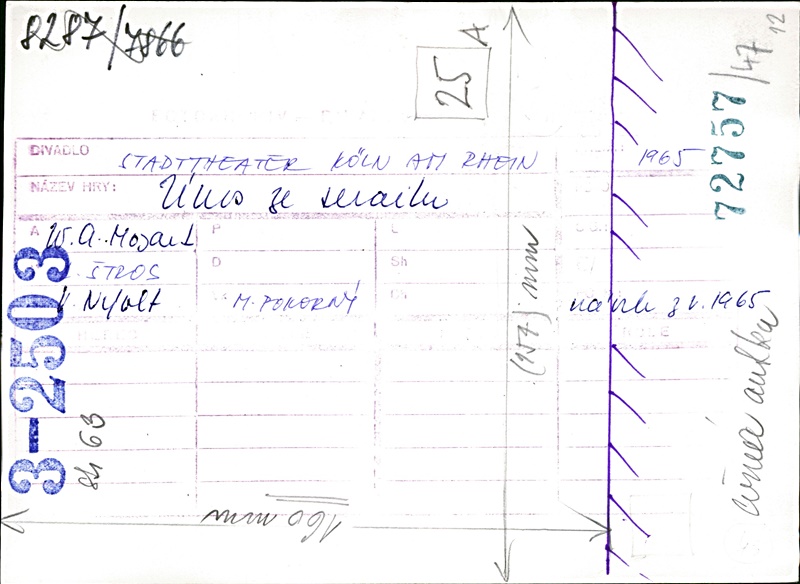 8287/7866
25 A
72757/47 12
DIVADLO STADTTHEATER KÖLN AM RHEIN 1965
NÁZEV HRY: Únos ze serailu
A W. A. Mozart P L
ŠTROS D Sh
V. Nývlt M. POKORNÝ Ch návrh z r. 1965
3-2503
84 63
(257) mm
160 mm